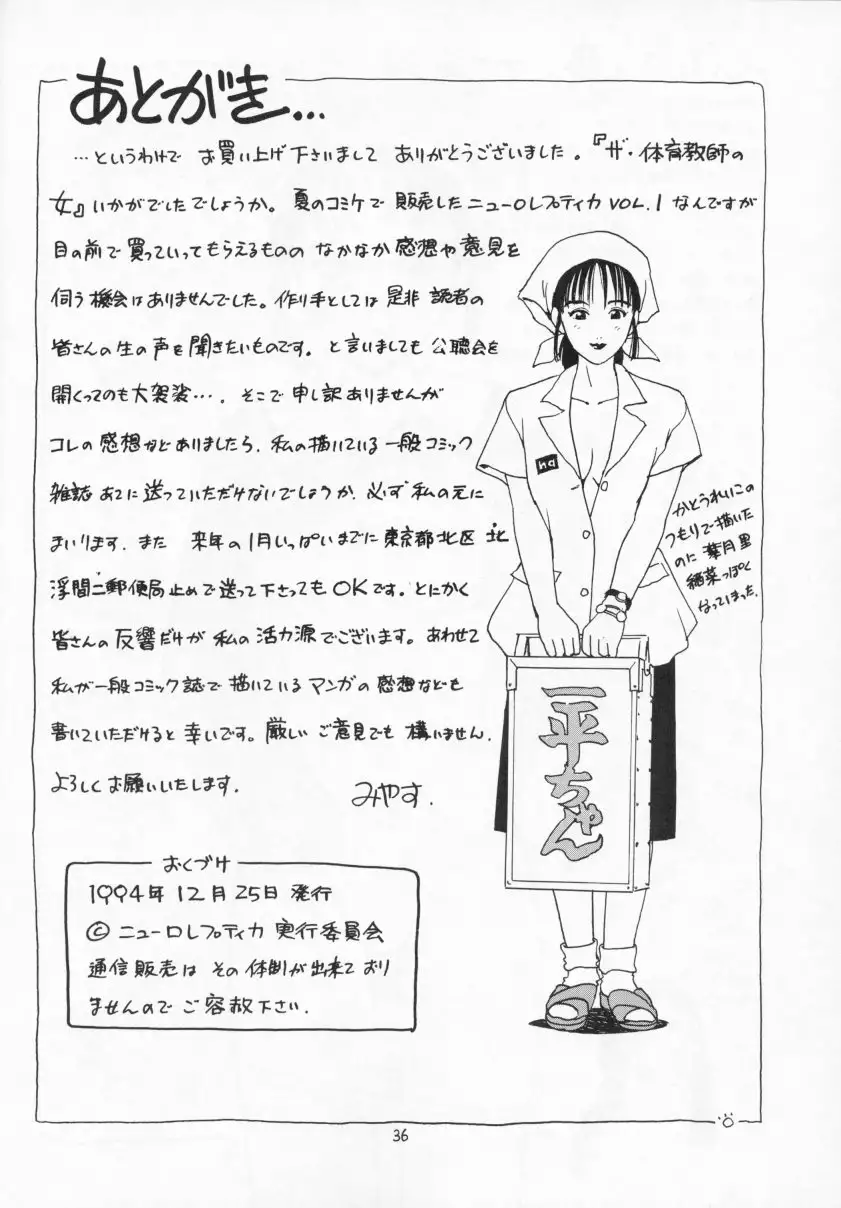 あとがき…
…というわけで お買い上げ下さいまして ありがとうございました。『ザ・体育教師の
女』いかがでしたでしょうか。夏のコミケで 販売したニューロレプティカ VOL.1 なんですが
目の前で買っていってもらえるものの なかなか感想や意見を
伺う機会はありませんでした。作り手としては是非 読者の
皆さんの生の声を聞きたいものです。と言いましても 公聴会を
開くってのも大袈裟…。そこで申し訳ありませんが
コレの感想などありましたら、私の描いている一般コミック
雑誌あてに送っていただけないでしょうか、必ず私の元に
まいります。また 来年の1月いっぱいまでに東京都北区 北
浮間二郵便局止めで送って下さってもOKです。とにかく
皆さんの反響だけが私の活力源でございます。あわせて
私が一般コミック誌で描いているマンガの感想なども
書いていただけると幸いです。厳しいご意見でも構いません。
よろしくお願いいたします。
みやす.
かとうれいこの
つもりで描いた
のに 葉月里
緒菜っぽく
なってしまった.
na
一平ちゃん
おくづけ
1994年12月25日発行
© ニューロレプティカ実行委員会
通信販売は その体制が出来ており
ませんのでご容赦下さい.
36